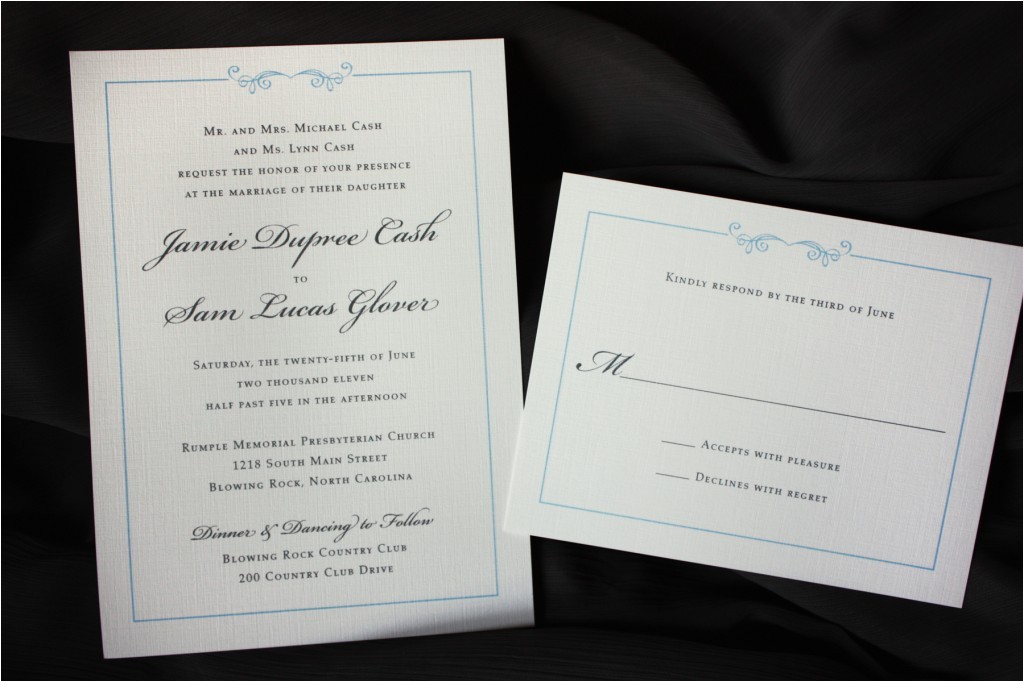 Mr. and Mrs. Michael Cash
and Ms. Lynn Cash
request the honor of your presence
at the marriage of their daughter
Jamie Dupree Cash
to
Sam Lucas Glover
Saturday, the twenty-fifth of June
two thousand eleven
half past five in the afternoon
Rumple Memorial Presbyterian Church
1218 South Main Street
Blowing Rock, North Carolina
Dinner & Dancing to Follow
Blowing Rock Country Club
200 Country Club Drive
Kindly respond by the third of June
M
Accepts with pleasure
Declines with regret